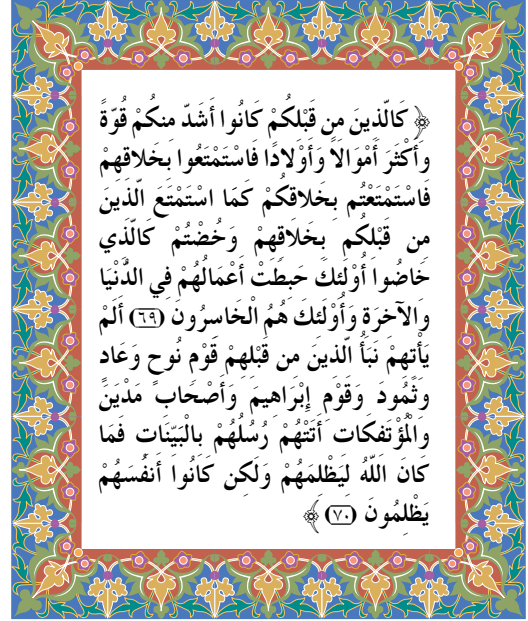 ﴿ كَالَّذِينَ مِن قَبْلِكُمْ كَانُوا أَشَدَّ مِنكُمْ قُوَّةً
وَأَكْثَرَ أَمْوَالاً وَأَوْلادًا فَاسْتَمْتَعُوا بِخَلاقِهِمْ
فَاسْتَمْتَعْتُم بِخَلاقِكُمْ كَمَا اسْتَمْتَعَ الَّذِينَ
مِن قَبْلِكُم بِخَلاقِهِمْ وَخُضْتُمْ كَالَّذِي
خَاضُوا أُوْلَئِكَ حَبِطَتْ أَعْمَالُهُمْ فِي الدُّنْيَا
وَالآخِرَةِ وَأُوْلَئِكَ هُمُ الْخَاسِرُونَ (٦٩) أَلَمْ
يَأْتِهِمْ نَبَأُ الَّذِينَ مِن قَبْلِهِمْ قَوْمِ نُوحٍ وَعَادٍ
وَثَمُودَ وَقَوْمِ إِبْرَاهِيمَ وَأَصْحَابِ مَدْيَنَ
وَالْمُؤْتَفِكَاتِ أَتَتْهُمْ رُسُلُهُمْ بِالْبَيِّنَاتِ فَمَا
كَانَ اللَّهُ لِيَظْلِمَهُمْ وَلَكِن كَانُوا أَنفُسَهُمْ
يَظْلِمُونَ (٧٠) ﴾